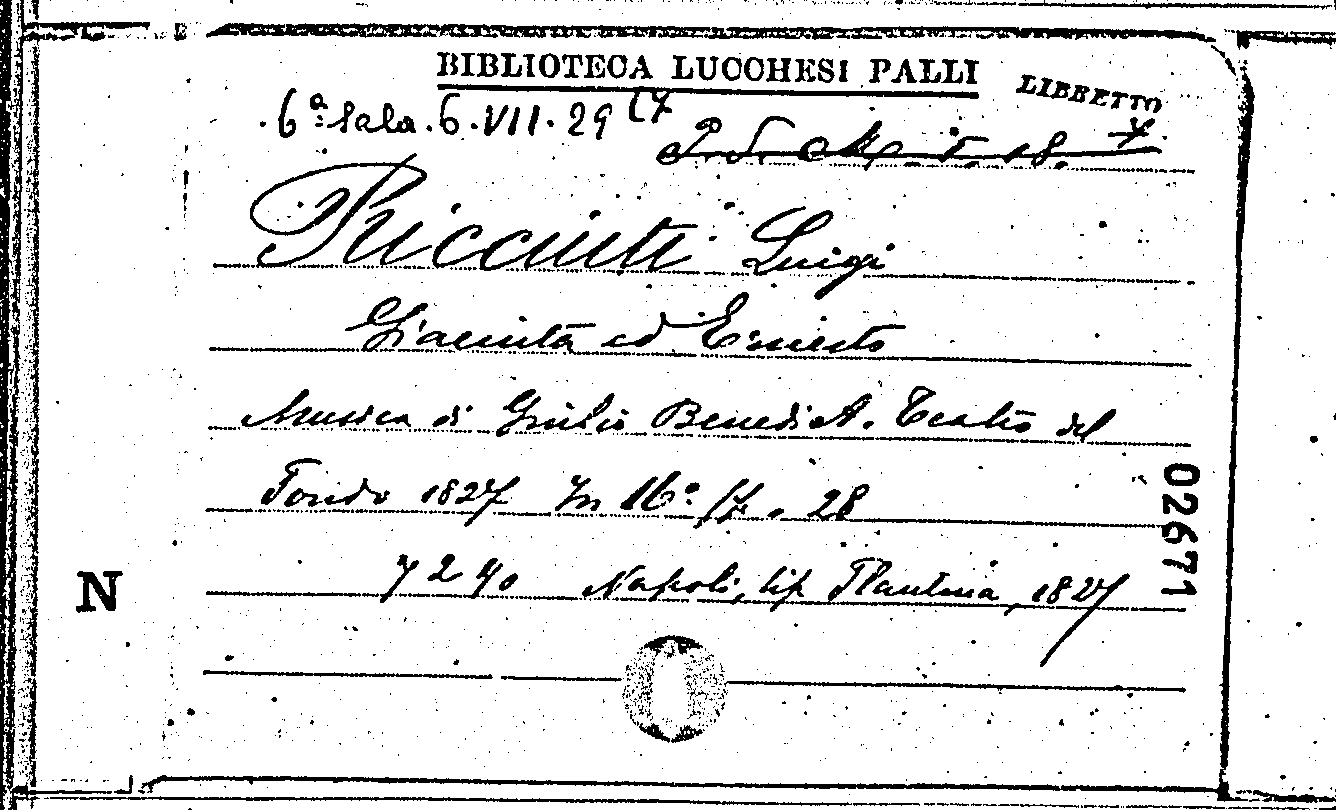 BIBLIOTECA LUCCHESI PALLI
LIBRETTO
6ª Sala. 6. VII. 29 17
Ricciuti Luigi
Giacinta ed Ernesto
Musica di Giulio Benedict. Teatro del
Fondo 1827 In 16º p. 28
7240 Napoli, tip. Plautina, 1827
02671
N